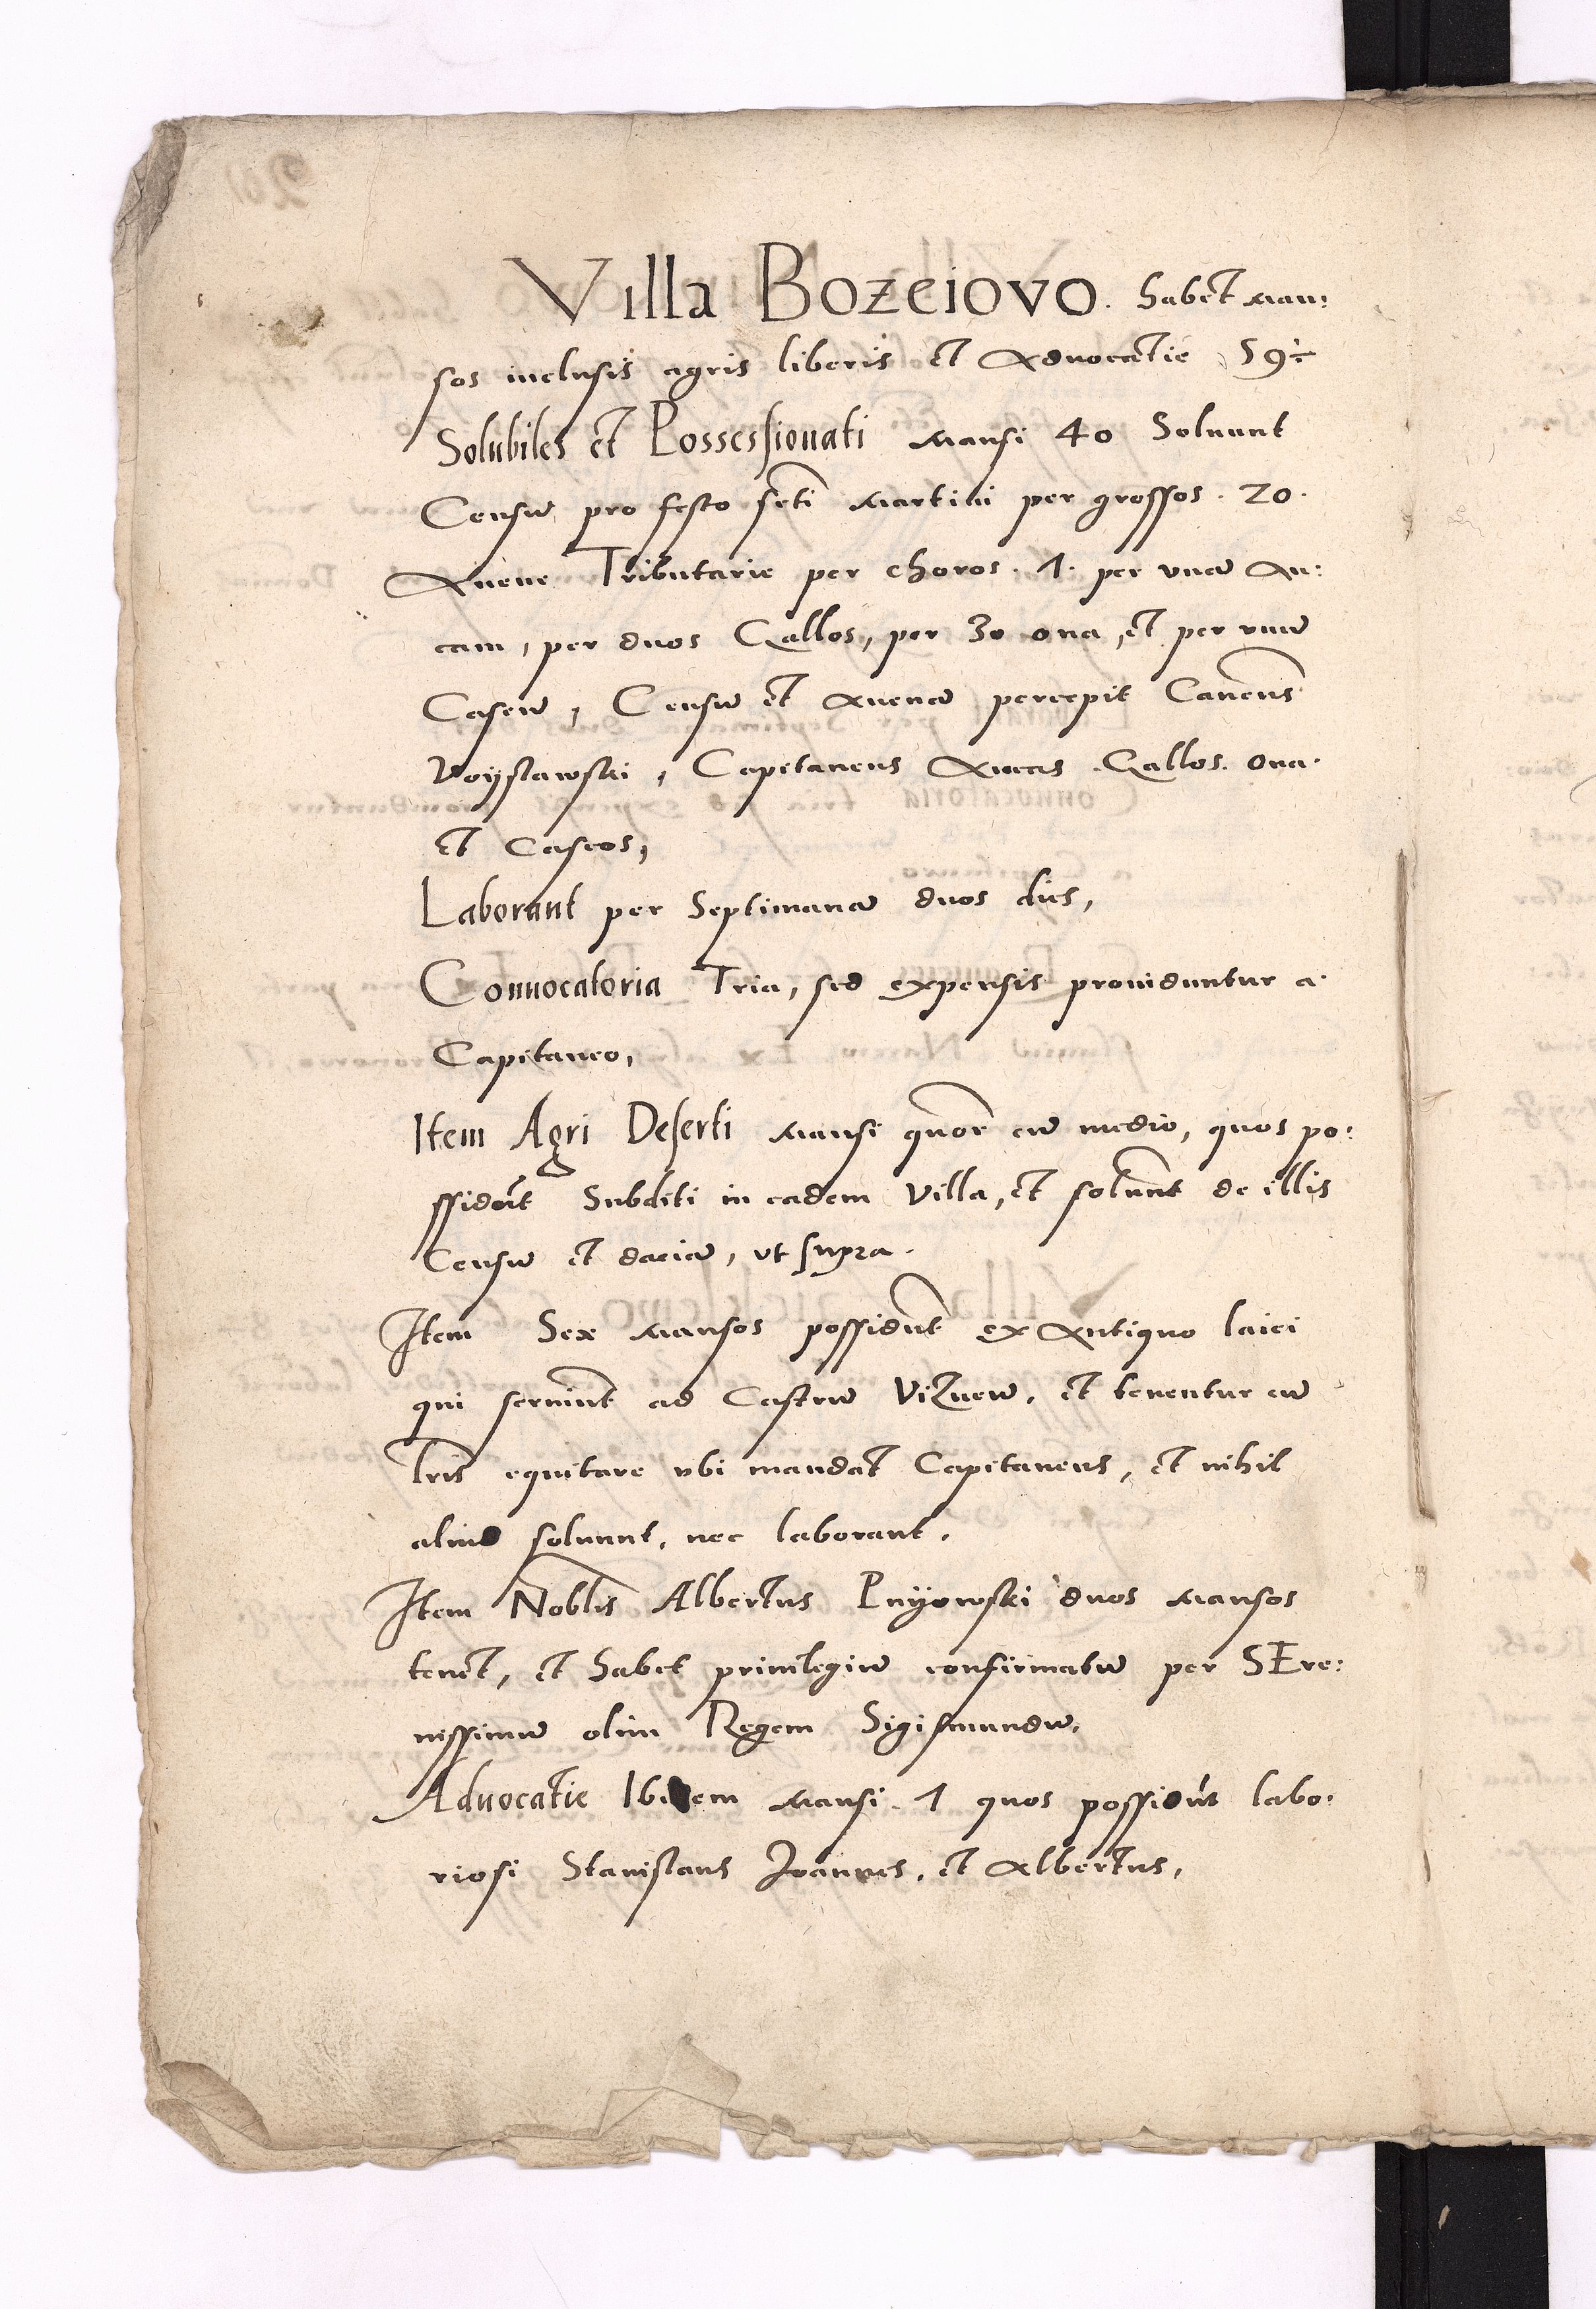 Villa Bozeiovo. habet man:
sos inclusis agris liberis et Aduocatie 59 ÷
Solubiles et Possessionati mansi 40 Soluunt
Censū pro festo scti martini per grossos . 20 .
Auene Tributarie per choros . 1 . per vnā Au:
cam, per duos Gallos, per 30 oua, et per vnū
Caseū, Censū et auenā percepit Caneus
Voyslawski, Capitaneus Aucas . Gallos . oua .
et Caseos,
Laborant per Septimanā duos dies,
Conuocatoria Tria, sed expensis prouiduntur a
Capitaneo,
Item Agri Deserti mansi quor cū medio, quos po:
ssidūt Subditi in eadem Villa, et soluūt de illis
Censū et daciā, vt supra .
Item Sex mansos possidūt ex Antiquo laici
qui seruiūt ad Castrū Viznew, et tenentur cū
lris equitare vbi mandat Capitaneus, et nihil
aliud soluunt, nec laborant .
Item Noblis Albertus Pnyowski duos mansos
tenet, et habet priuilegiū confirmatū per SEre:
nissimū olim Regem Sigismundū,
Aduocatie Ibidem mansi . 1 quos possidūt labo:
riosi Stanislaus Joannes, et Albertus,